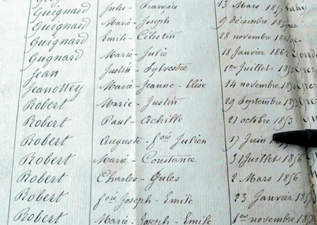 Guignard Jules - François 13 Mars 18
Guignard Marie - Joseph 9 décembre
Guignard Emile - Célestin 28 novembre
Gugnard Marie - Julie 18 Janvier 186
Jean Justin - Sylvestre 1er Juillet 185
Jeanottey Marie - Jeanne - Elise 14 novembre
Robert Marie - Justin 29 Septembre
Robert Paul - Achille 21 octobre 1853
Robert Auguste - fois Julien 17 Juin
Robert Marie - Constance 3 Juillet 1856
Robert Charles - Gules 2 Mars 1856
Robert Joseph - Emile 23 Janvier
Robert Marie - Joseph - Emile 1er novembre